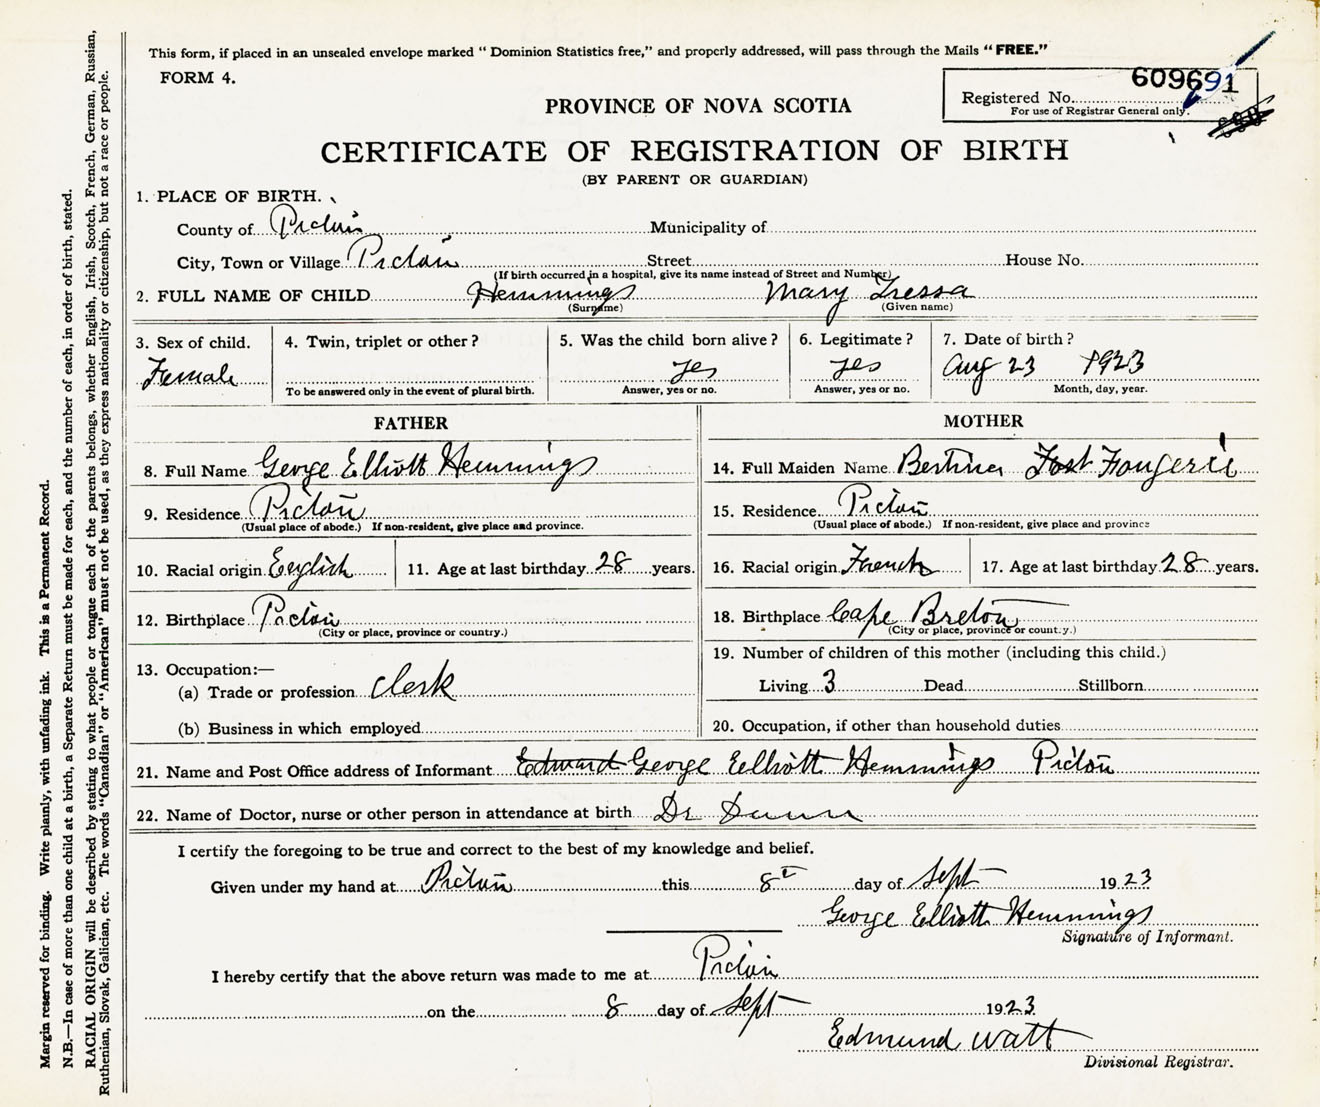 This form, if placed in an unsealed envelope marked “ Dominion Statistics free,” and properly addressed, will pass through the Mails “ FREE.”
FORM 4.
609691
Registered No.
For use of Registrar General only.
PROVINCE OF NOVA SCOTIA
CERTIFICATE OF REGISTRATION OF BIRTH
(BY PARENT OR GUARDIAN)
1. PLACE OF BIRTH.
County of Pictou Municipality of
City, Town or Village Pictou Street House No.
(If birth occurred in a hospital, give its name instead of Street and Number)
2. FULL NAME OF CHILD Hemmings Mary Tressa
(Surname) (Given name)
3. Sex of child. 4. Twin, triplet or other? 5. Was the child born alive? 6. Legitimate? 7. Date of birth?
Female yes yes Aug 23 1923
To be answered only in the event of plural birth. Answer, yes or no. Answer, yes or no. Month, day, year.
FATHER
8. Full Name George Elliott Hemmings
9. Residence Pictou
(Usual place of abode.) If non-resident, give place and province.
10. Racial origin English 11. Age at last birthday 28 years.
12. Birthplace Pictou
(City or place, province or country.)
13. Occupation:—
(a) Trade or profession clerk
(b) Business in which employed
MOTHER
14. Full Maiden Name Bertina Fougere
15. Residence Pictou
(Usual place of abode.) If non-resident, give place and province
16. Racial origin French 17. Age at last birthday 28 years.
18. Birthplace Cape Breton
(City or place, province or country.)
19. Number of children of this mother (including this child.)
Living 3 Dead Stillborn
20. Occupation, if other than household duties
21. Name and Post Office address of Informant Edward George Elliott Hemmings Pictou
22. Name of Doctor, nurse or other person in attendance at birth Dr Dunn
I certify the foregoing to be true and correct to the best of my knowledge and belief.
Given under my hand at Pictou this 8 day of Sept 1923
George Elliott Hemmings
Signature of Informant.
I hereby certify that the above return was made to me at Pictou
on the 8 day of Sept 1923
Edmund Watt
Divisional Registrar.
Margin reserved for binding. Write plainly, with unfading ink. This is a Permanent Record.
N.B.—In case of more than one child at a birth, a Separate Return must be made for each, and the number of each, in order of birth, stated.
RACIAL ORIGIN will be described by stating to what people or tongue each of the parents belongs, whether English, Irish, Scotch, French, German, Russian,
Ruthenian, Slovak, Galician, etc. The words “Canadian” or “American” must not be used, as they express nationality or citizenship, but not a race or people.